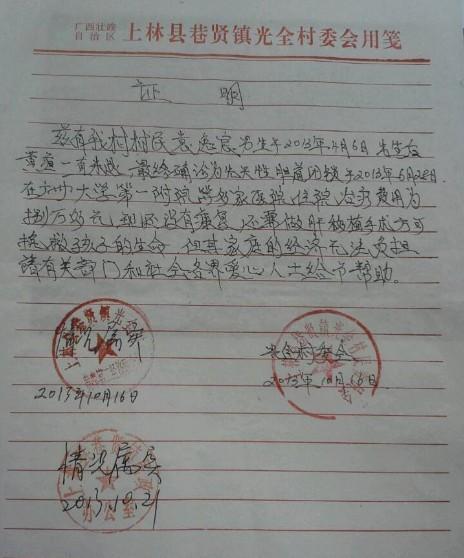 广西壮族
自治区 上林县巷贤镇光全村委会用笺
证 明
兹有我村村民袁 男生于2013年4月6日 先生在
黄疸一直未退 最终确诊为先天性胆道闭锁于2013年6月28日
在 大学第一附院 等多家医院住院 治疗费用为
捌万多元,现还没有痊愈,还要做肝移植手术方可
挽救孩子的生命,但其家庭的经济无法负担
请有关部门和社会各界爱心人士给予帮助。
情况属实
2013年10月16日
光全村委会
2013年10月16日
情况属实
2013.10.21
办公室